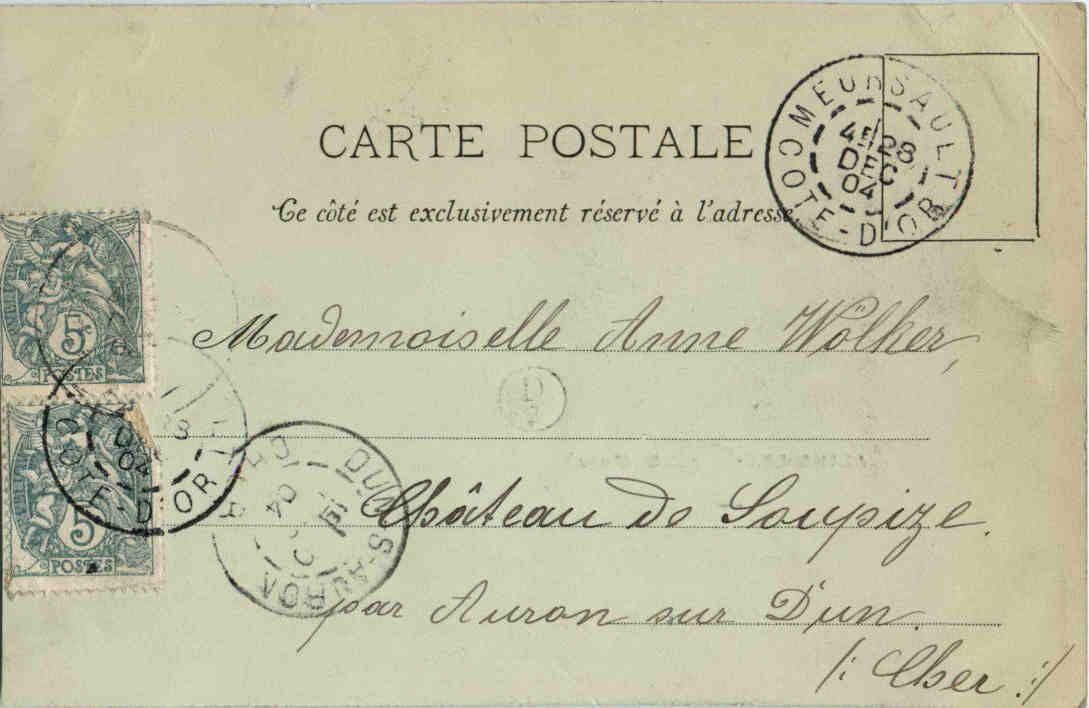 CARTE POSTALE
Ce côté est exclusivement réservé à l'adresse.
MEURSAULT
4E 28
DEC
04
COTE-D'OR
5c
POSTES
Mademoiselle Anne Wolker,
D
5c
POSTES
04
COTE-D'OR
DUN-S-AURON
04
Château de Soupize.
par Auron sur Dun.
/: Cher :/